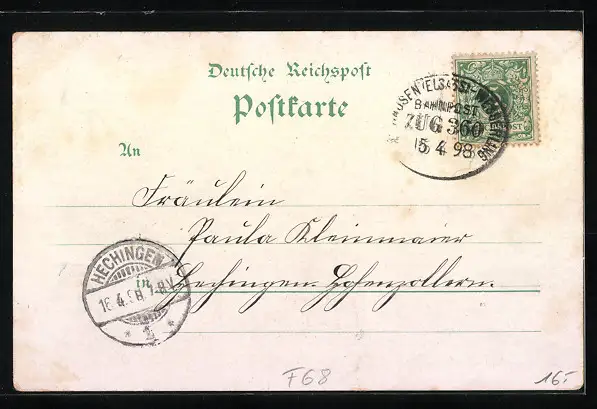 Deutsche Reichspost
Postkarte
HAUSEN (ELSASS)-
BAHNPOST
ZUG 360
15 4 98
POST
An
Fräulein
Paula Kleinmaier
in Hechingen. Hohenzollern.
HECHINGEN
16.4.98. 7-8V.
* 2 *
F68
16.-